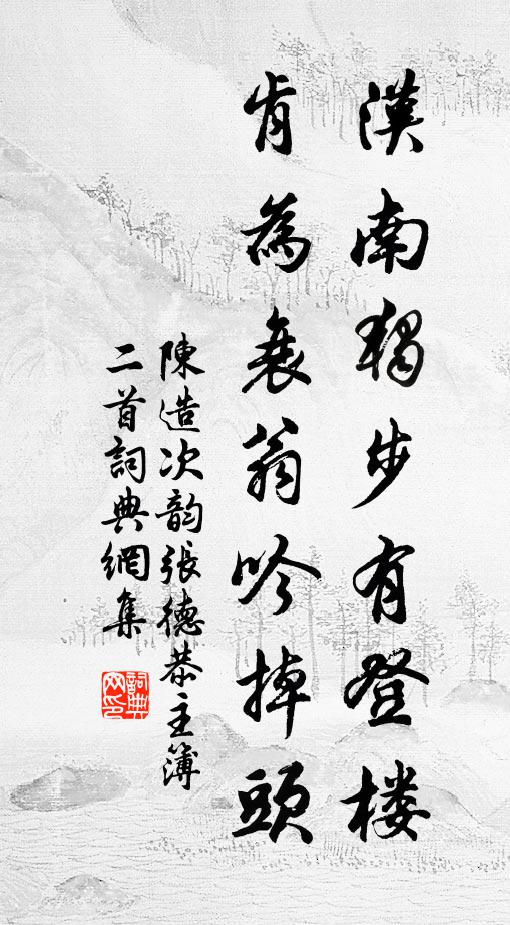 漢南獨步有登楼
肯為衰翁吟掉頭
陳造次韵張德恭主簿
二首詞典網集
詞典
网印